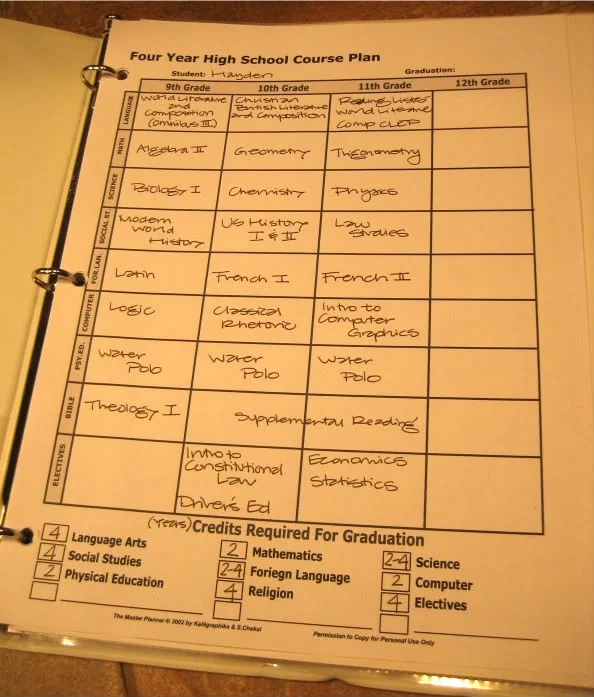 Four Year High School Course Plan
Student: Hayden Graduation:
9th Grade 10th Grade 11th Grade 12th Grade
LANGUAGE
World Literature
and
Composition
(Omnibus III)
Christian
British Literature
and Composition
Reading Lists
World Literature
Comp CLEP
MATH
Algebra II
Geometry
Trigonometry
SCIENCE
Biology I
Chemistry
Physics
SOCIAL ST.
Modern
World
History
US History
I & II
Law
Studies
FOR.LAN.
Latin
French I
French II
COMPUTER
Logic
Classical
Rhetoric
Intro to
Computer
Graphics
PSY.ED.
Water
Polo
Water
Polo
Water
Polo
BIBLE
Theology I
Supplemental Reading
ELECTIVES
Intro to
Constitutional
Law
Driver's Ed
Economics
Statistics
(Years) Credits Required For Graduation
4 Language Arts
4 Social Studies
2 Physical Education
2 Mathematics
2-4 Foriegn Language
4 Religion
2-4 Science
2 Computer
4 Electives
The Master Planner © 2003 by Kalligraphiks & S.Chekal
Permission to Copy for Personal Use Only